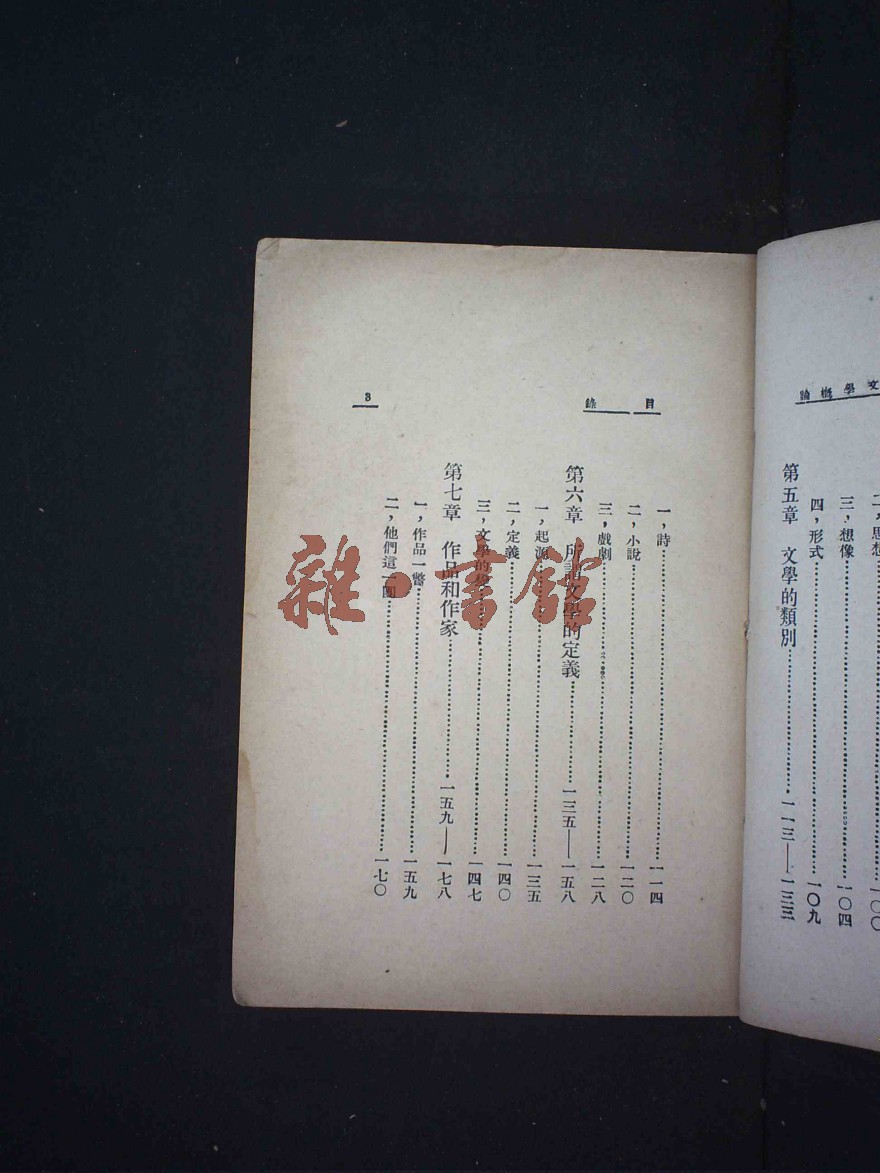 文學概論
二，思想……一〇〇
三，想像……一〇四
四，形式……一〇九
第五章 文學的類別……一一三——一三三
目錄
一，詩……一一四
二，小說……一二〇
三，戲劇……一二八
第六章 所謂文學的定義……一三五——一五八
一，起源……一三五
二，定義……一四〇
三，文學的……一四七
第七章 作品和作家……一五九——一七八
一，作品一瞥……一五九
二，他們這一……一七〇
3
雜·書館